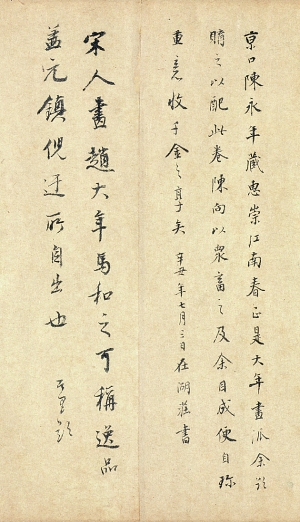 京口陳永年藏惠崇江南春正是大年畫派余欲
購之以配此卷陳向以眾畜之及余目成便自珍
重意收千金之享矣辛丑年七月三日在湖莊書
宋人畫趙大年馬和之可稱逸品
蓋元鎮倪迂所自出也